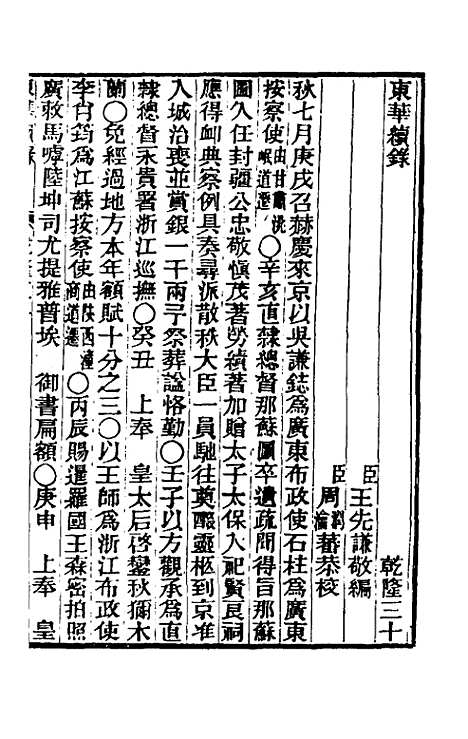 東華續錄　乾隆三十
臣王先謙敬編
臣周潤蕃周瀹蕃恭校
秋七月庚戌召赫慶來京以吳謙鋕爲廣東布政使石柱爲廣東
按察使由甘肅洮岷道遷〇辛亥直隸總督那蘇圖卒遺疏聞得旨那蘇
圖久任封疆公忠敬愼茂著勞績著加贈太子太保入祀賢良祠
應得卹典察例具奏尋派散秩大臣一員馳往奠醊靈柩到京准
入城治喪並賞銀一千兩予祭葬諡恪勤〇壬子以方觀承爲直
隸總督永貴署浙江巡撫〇癸丑　上奉　皇太后啓鑾秋獮木
蘭〇免經過地方本年額賦十分之三〇以王師爲浙江布政使
李肖筠爲江蘇按察使由陝西潼商道遷〇丙辰賜暹羅國王森密拍照
廣敕馬嘑陸坤司尤提雅普埃　御書扁額〇庚申　上奉　皇